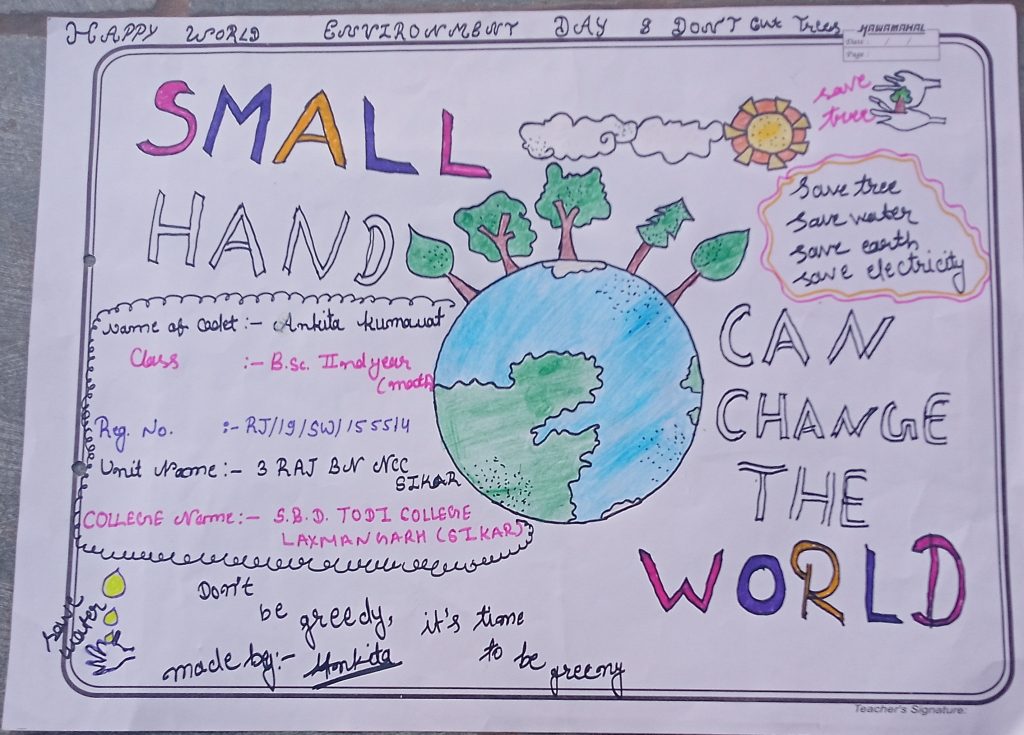 HAPPY WORLD ENVIRONMENT DAY & DON'T Cut Trees
HAWAMAHAL
Date : / /
Page :
SMALL
HAND
save
tree
save tree
save water
save earth
save electricity
CAN
CHANGE
THE
WORLD
Name of Cadet :- Ankita Kumawat
Class :- B.Sc. IInd year
(math)
Reg. No. :- RJ/19/SW/155514
Unit Name :- 3 RAJ BN NCC
SIKAR
COLLEGE Name :- S.B.D. TODI COLLEGE
LAXMANGARH (SIKAR)
save
water
Don't
be greedy, it's time
to be greeny
made by:- Ankita
Teacher's Signature: